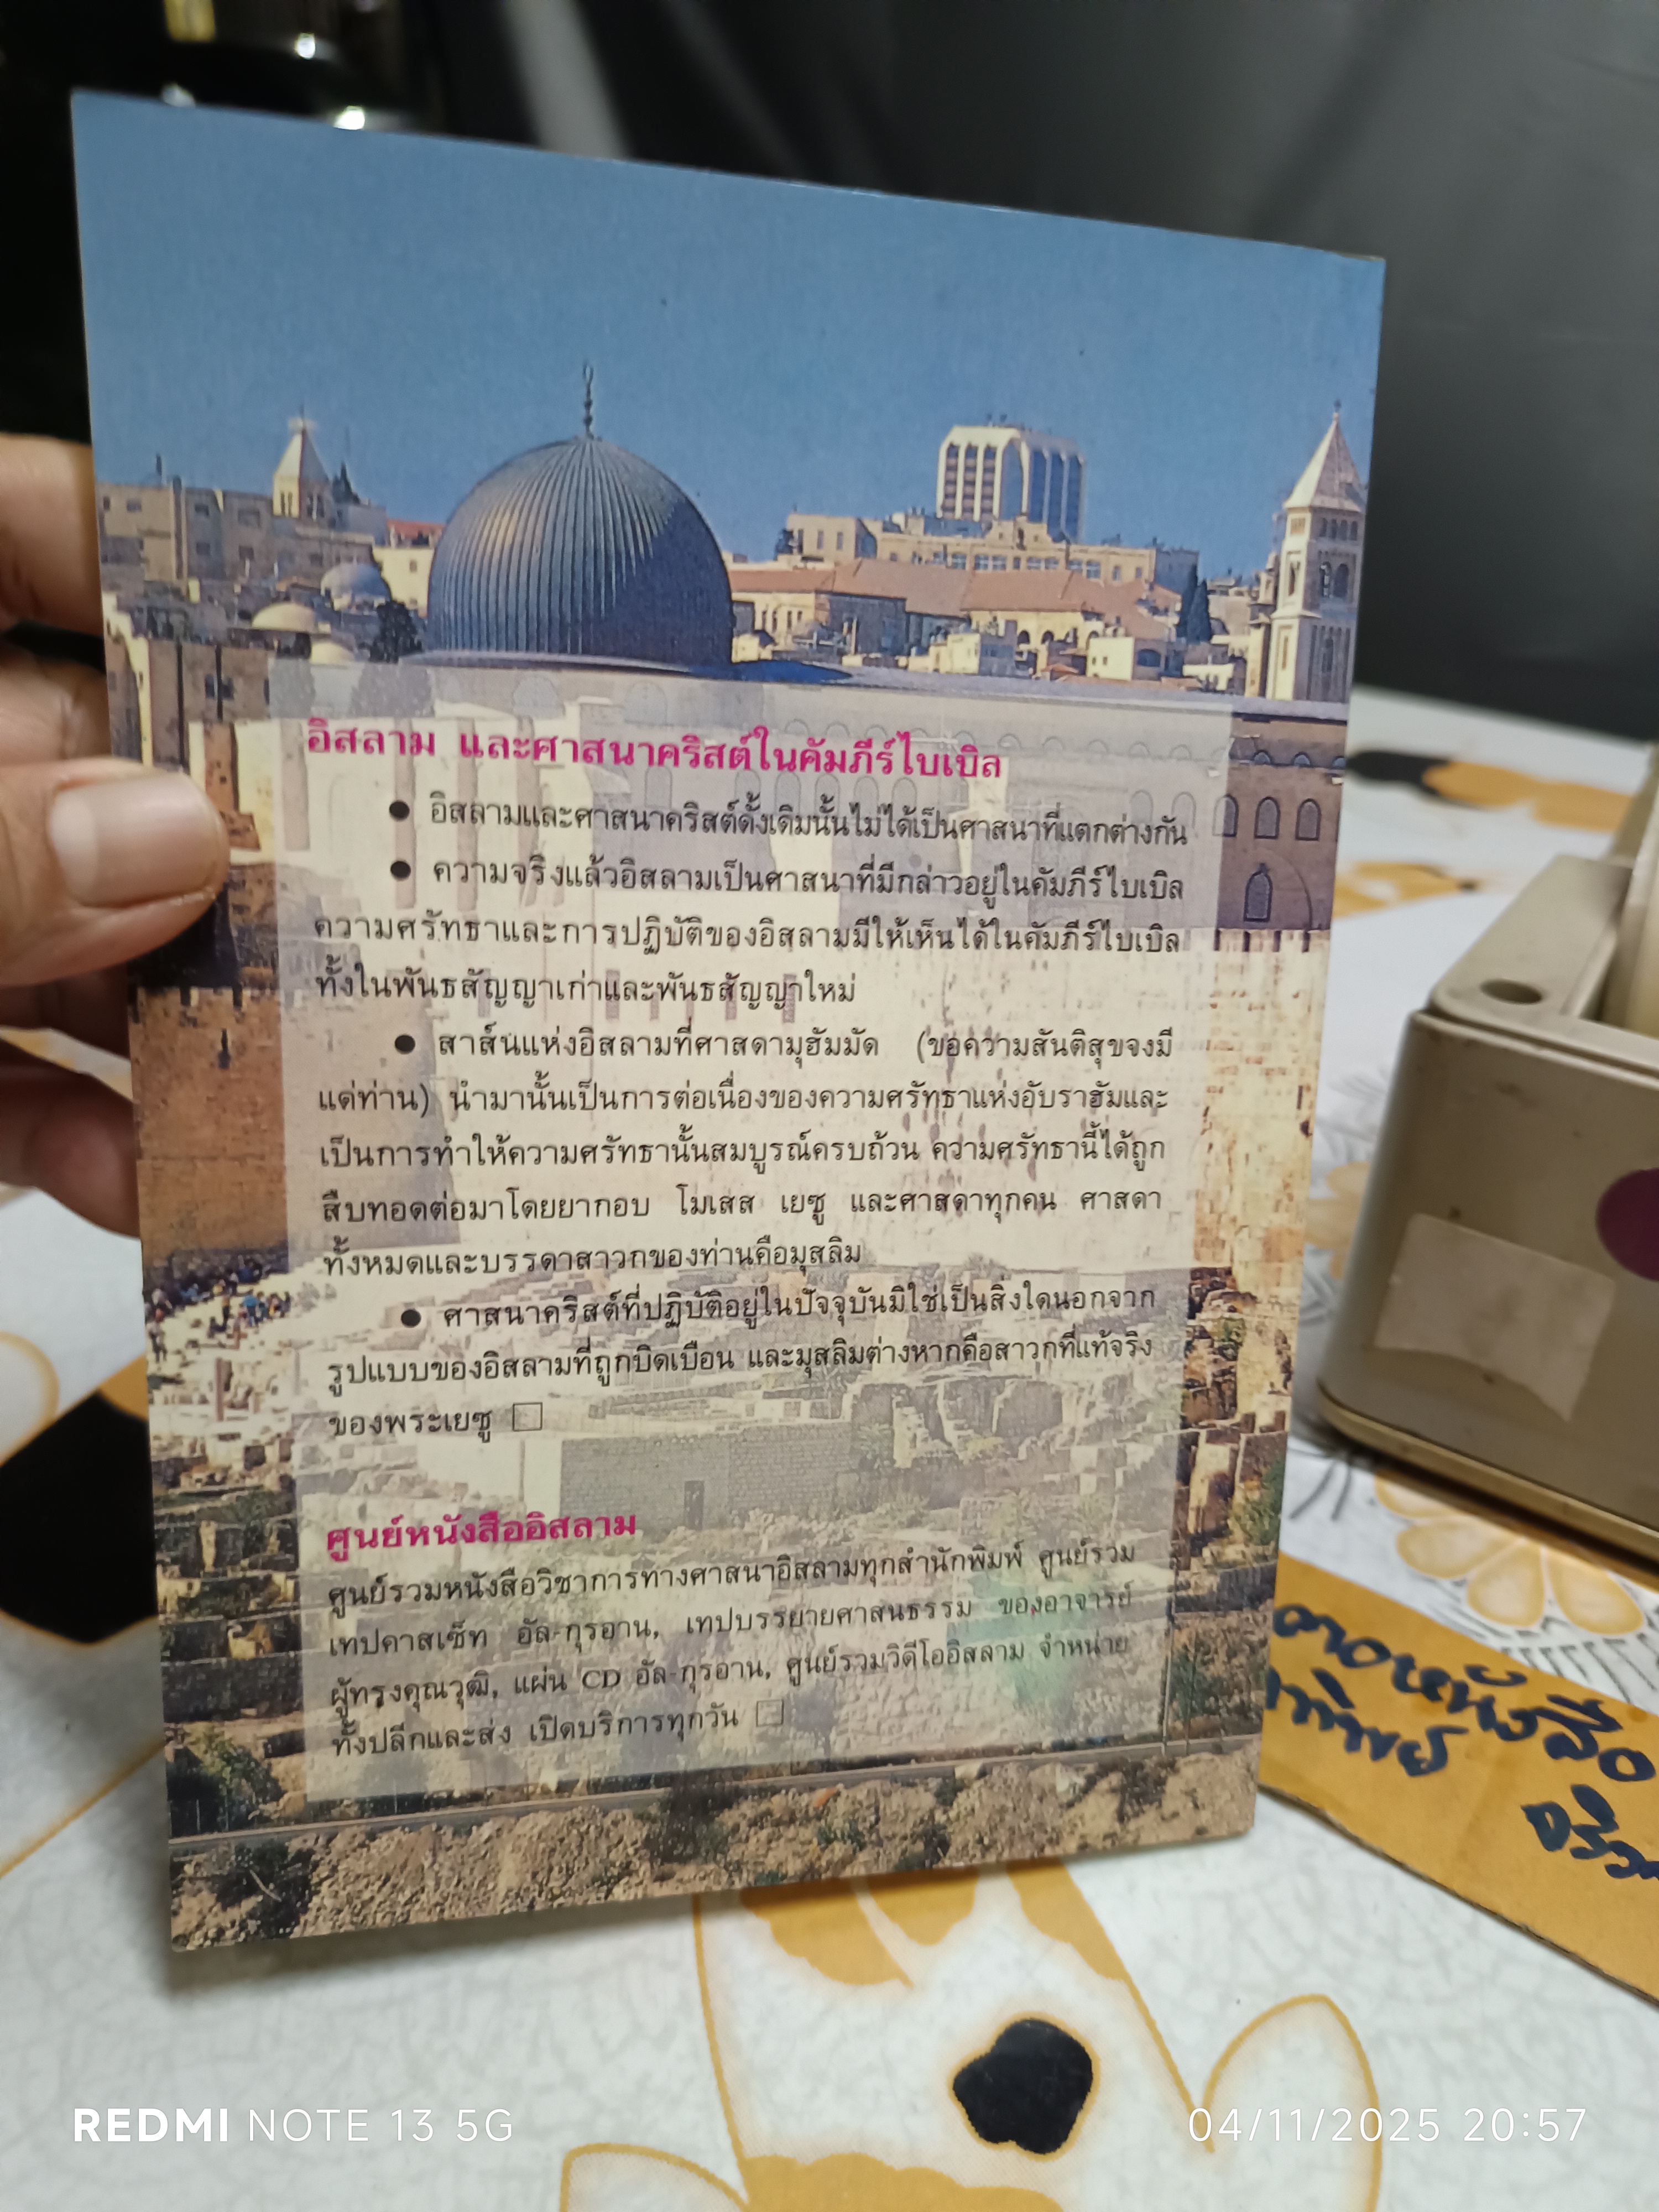 อิสลาม และศาสนาคริสต์ในคัมภีร์ไบเบิล
● อิสลามและศาสนาคริสต์ดั้งเดิมนั้นไม่ได้เป็นศาสนาที่แตกต่างกัน
● ความจริงแล้วอิสลามเป็นศาสนาที่มีกล่าวอยู่ในคัมภีร์ไบเบิล
ความศรัทธาและการปฏิบัติของอิสลามมีให้เห็นได้ในคัมภีร์ไบเบิล
ทั้งในพันธสัญญาเก่าและพันธสัญญาใหม่
● สาส์นแห่งอิสลามที่ศาสดามุฮัมมัด (ขอความสันติสุขจงมี
แด่ท่าน) นำมานั้นเป็นการต่อเนื่องของความศรัทธาแห่งอับราฮัมและ
เป็นการทำให้ความศรัทธานั้นสมบูรณ์ครบถ้วน ความศรัทธานี้ได้ถูก
สืบทอดต่อมาโดยยากอบ โมเสส เยซู และศาสดาทุกคน ศาสดา
ทั้งหมดและบรรดาสาวกของท่านคือมุสลิม
● ศาสนาคริสต์ที่ปฏิบัติอยู่ในปัจจุบันมิใช่เป็นสิ่งใดนอกจาก
รูปแบบของอิสลามที่ถูกบิดเบือน และมุสลิมต่างหากคือสาวกที่แท้จริง
ของพระเยซู □
ศูนย์หนังสืออิสลาม
ศูนย์รวมหนังสือวิชาการทางศาสนาอิสลามทุกสำนักพิมพ์ ศูนย์รวม
เทปคาสเซ็ท อัล-กุรอาน, เทปบรรยายศาสนธรรม ของอาจารย์
ผู้ทรงคุณวุฒิ, แผ่น CD อัล-กุรอาน, ศูนย์รวมวิดีโออิสลาม จำหน่าย
ทั้งปลีกและส่ง เปิดบริการทุกวัน □
REDMI NOTE 13 5G
04/11/2025 20:57